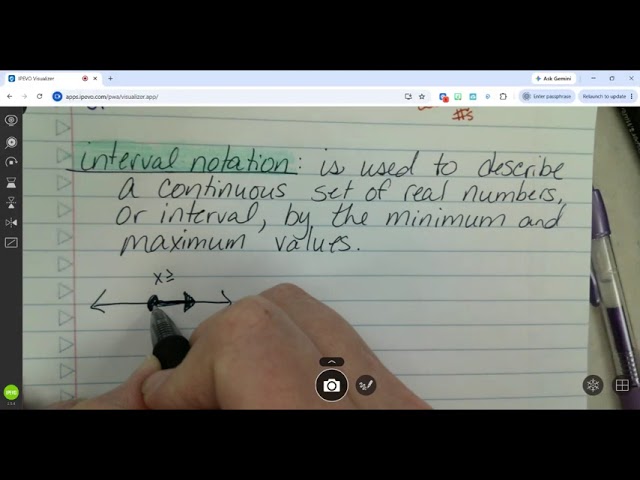 IPEVO Visualizer
Ask Gemini
apps.ipevo.com/pwa/visualizer.app/
Enter passphrase
Relaunch to update
#s
interval notation: is used to describe
a continuous set of real numbers,
or interval, by the minimum and
maximum values.
x≥